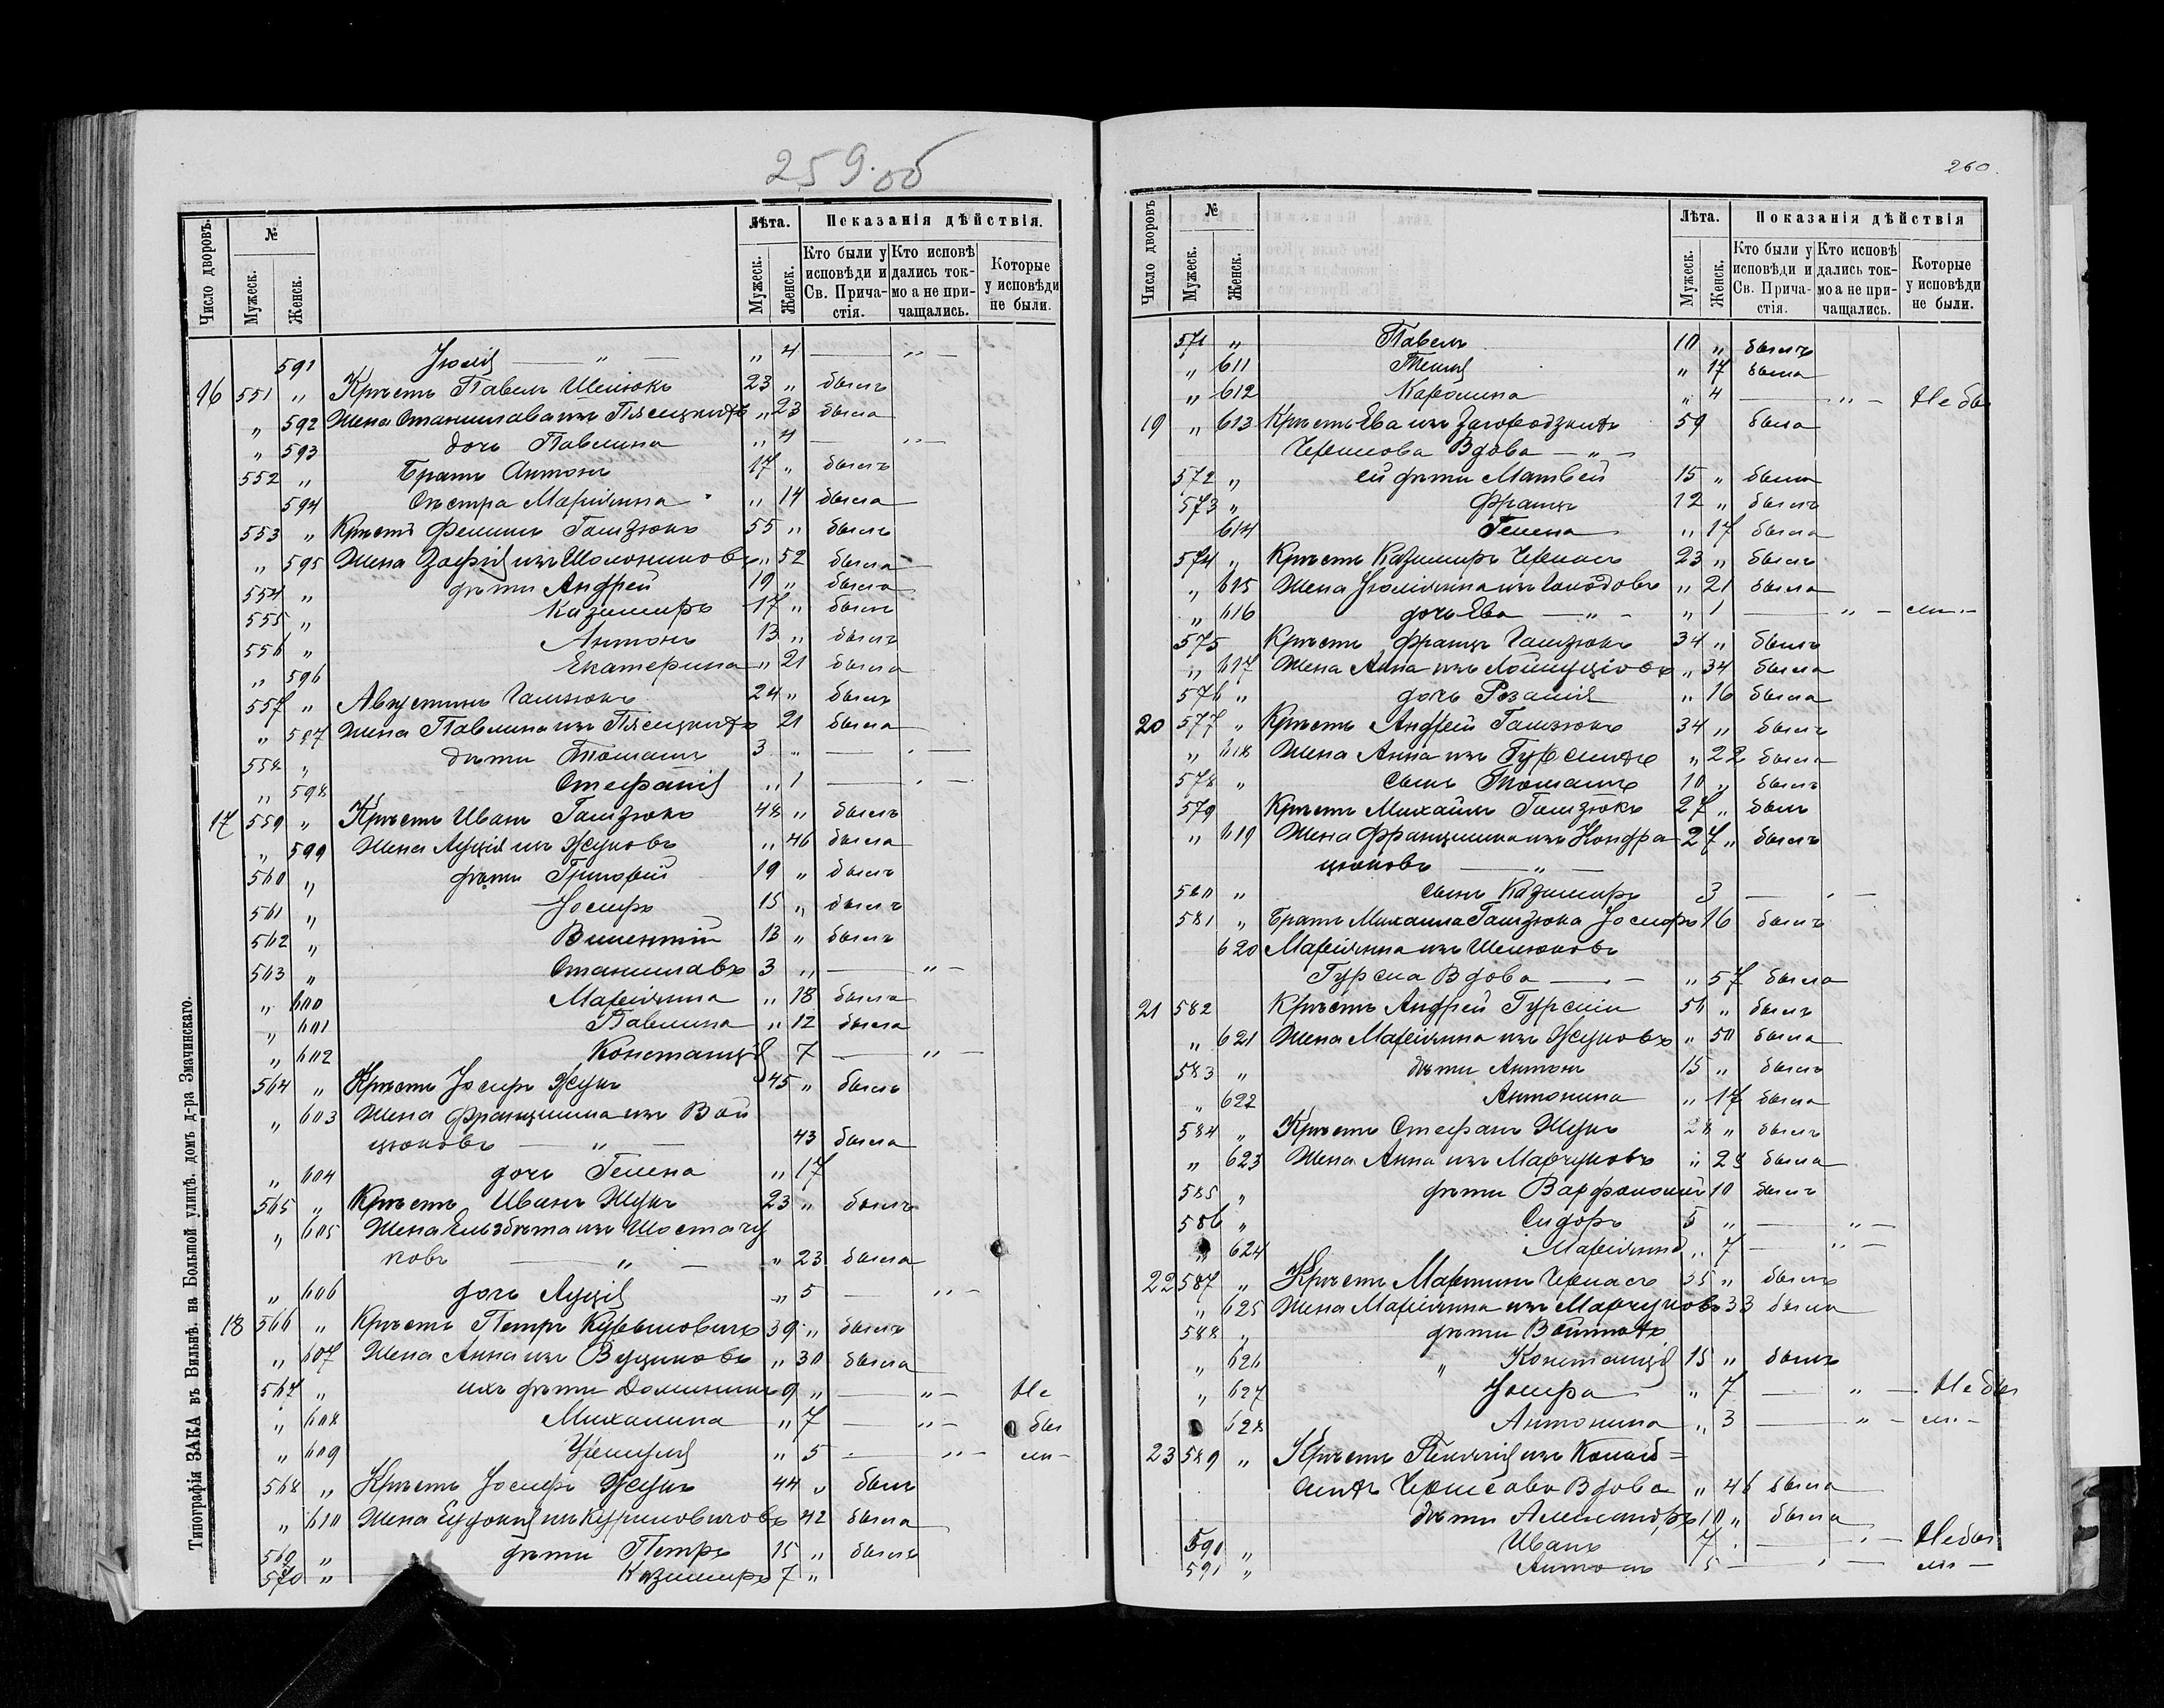 259 об
Число дворовъ. № Лѣта. Показанія дѣйствія.
Мужеск. Женск. Мужеск. Женск. Кто были у исповѣди и Св. Причастія. Кто исповѣдались токмо а не причащались. Которые у исповѣди не были.
591 Юлія — " — " 4 — " —
16 551 " Крѣст Павелъ Шелюкъ 23 " былъ
" 592 Жена Станислава изъ " 23 была
" 593 дочь Павлина " 4 — " —
552 " Братъ Антонъ 17 " былъ
594 Сестра Маріянна " 14 была
553 " Крѣст Феликсъ Галзюкъ 55 " былъ
" 595 Жена Зофія изъ " 52 была
554 " дѣти Андрей 19 " была
555 " Казимиръ 17 " былъ
556 " Антонъ 13 " былъ
" 596 Екатерина " 21 была
557 " Августинъ Галзюкъ 24 " былъ
" 597 Жена Павлина изъ 21 была
558 " дѣти Томашъ 3 " — " —
" 598 Стефанія " 1 — " —
17 559 " Крѣст Иванъ Галзюкъ 48 " былъ
" 599 Жена Луція изъ Жуковъ " 46 была
560 " дѣти Григорій 19 " былъ
561 " Іосифъ 15 " былъ
562 " Викентій 13 " былъ
563 " Станиславъ 3 " — " —
" 600 Маріянна " 18 была
" 601 Павлина " 12 была
" 602 Констанція 7 — " —
564 " Крѣст Іосифъ Жукъ 45 " былъ
" 603 Жена Францишка изъ Вой
цюковъ — " — 43 была
" 604 дочь Гелена " 17
565 " Крѣст Иванъ Жукъ 23 " былъ
" 605 Жена Елизбѣта изъ Шостачу
ковъ — " — " 23 была
" 606 дочь Луція " 5 — " —
18 566 " Крѣст Петръ 39 " былъ
" 607 Жена Анна изъ " 30 была
567 " ихъ дѣти Доминикъ 9 " — " — Не
" 608 Михалина " 7 — " — бы
" 609 Уршуля " 5 — " — ли —
568 " Крѣст Іосифъ Жукъ 44 " былъ
" 610 Жена Евдокія изъ 42 была
569 " дѣти Петръ 15 " былъ
570 " Казимиръ 7 "
Типографія ЗАКА въ Вильнѣ. на Большой улицѣ. домъ д-ра Змачинскаго.
260.
Число дворовъ № Лѣта. Показанія дѣйствія
Мужеск. Женск. Мужеск. Женск. Кто были у исповѣди и Св. Причастія. Кто исповѣдались токмо а не причащались. Которые у исповѣди не были.
571 " Павелъ 10 " былъ
" 611 Текля " 17 была
" 612 Каролина " 4 — " — Не бы
19 " 613 Крѣст Ева изъ 59 была
Вдова — " —
572 " ей дѣти Матвей 15 " былъ
573 " Францъ 12 " былъ
614 Гелена " 17 была
574 " Крѣст Казимиръ 23 " былъ
" 615 Жена Юліянна изъ " 21 была
" 616 дочь Ева — " — " 1 — " — ли —
575 Крѣст Францъ Галзюкъ 34 " былъ
" 617 Жена Анна изъ " 34 была
576 " дочь Розалія " 16 была
20 577 " Крѣст Андрей Галзюкъ 34 " былъ
" 618 Жена Анна изъ " 22 была
578 " сынъ Томашъ 10 " былъ
579 Крѣст Михаилъ Галзюкъ 27 " былъ
" 619 Жена Францишка изъ Кондра 27 " былъ
цюковъ — " —
580 " сынъ Казимиръ 3 — " —
581 " Братъ Михаила Галзюка Іосифъ 16 былъ
620 Маріянна изъ Шелюковъ
Гурска Вдова — " 57 была
21 582 Крѣст Андрей Гурскій 56 " былъ
" 621 Жена Маріянна изъ Жуковъ " 50 была
583 " дѣти Антонъ 15 " былъ
" 622 Антонина " 17 была
584 " Крѣст Стефанъ Жукъ 28 " былъ
" 623 Жена Анна изъ Марчуковъ " 28 была
585 " дѣти Варфоломій 10 былъ
586 " Сидоръ 5 " — " —
" 624 Маріянна " 7 — " —
22 587 " Крѣст Мартинъ 35 " былъ
" 625 Жена Маріянна изъ Марчуковъ 33 была
588 " дѣти
" 626 " Констанція 15 " былъ
" 627 Іозефа " 7 — " — Не бы
628 Антонина " 3 — " — ли —
23 589 " Крѣст
Вдова " 46 была
дѣти Александръ 10 " была
590 " Иванъ 7 — " — Не бы
591 " Антонъ 5 — " — ли —